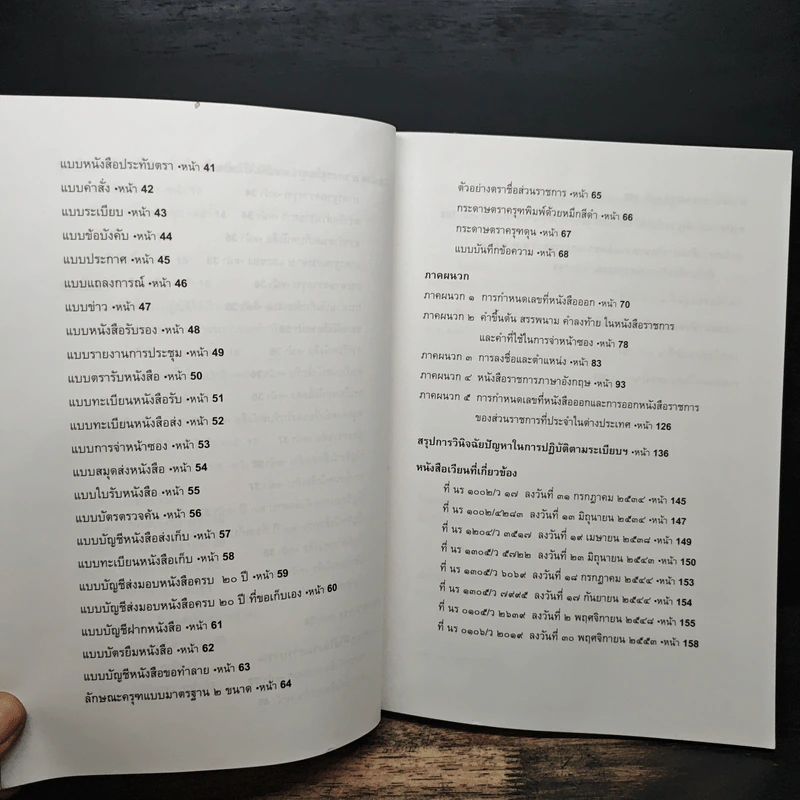 แบบหนังสือประทับตรา •หน้า 41
แบบคำสั่ง •หน้า 42
แบบระเบียบ •หน้า 43
แบบข้อบังคับ •หน้า 44
แบบประกาศ •หน้า 45
แบบแถลงการณ์ •หน้า 46
แบบข่าว •หน้า 47
แบบหนังสือรับรอง •หน้า 48
แบบรายงานการประชุม •หน้า 49
แบบตรารับหนังสือ •หน้า 50
แบบทะเบียนหนังสือรับ •หน้า 51
แบบทะเบียนหนังสือส่ง •หน้า 52
แบบการจ่าหน้าซอง •หน้า 53
แบบสมุดส่งหนังสือ •หน้า 54
แบบใบรับหนังสือ •หน้า 55
แบบบัตรตรวจค้น •หน้า 56
แบบบัญชีหนังสือส่งเก็บ •หน้า 57
แบบทะเบียนหนังสือเก็บ •หน้า 58
แบบบัญชีส่งมอบหนังสือครบ ๒๐ ปี •หน้า 59
แบบบัญชีส่งมอบหนังสือครบ ๒๐ ปี ที่ขอเก็บเอง •หน้า 60
แบบบัญชีฝากหนังสือ •หน้า 61
แบบบัตรยืมหนังสือ •หน้า 62
แบบบัญชีหนังสือขอทำลาย •หน้า 63
ลักษณะครุฑแบบมาตรฐาน ๒ ขนาด •หน้า 64
ตัวอย่างตราชื่อส่วนราชการ •หน้า 65
กระดาษตราครุฑพิมพ์ด้วยหมึกสีดำ •หน้า 66
กระดาษตราครุฑดุน •หน้า 67
แบบบันทึกข้อความ •หน้า 68
ภาคผนวก
ภาคผนวก ๑ การกำหนดเลขที่หนังสือออก •หน้า 70
ภาคผนวก ๒ คำขึ้นต้น สรรพนาม คำลงท้าย ในหนังสือราชการ
และคำที่ใช้ในการจ่าหน้าซอง •หน้า 78
ภาคผนวก ๓ การลงชื่อและตำแหน่ง •หน้า 83
ภาคผนวก ๔ หนังสือราชการภาษาอังกฤษ •หน้า 93
ภาคผนวก ๕ การกำหนดเลขที่หนังสือออกและการออกหนังสือราชการ
ของส่วนราชการที่ประจำในต่างประเทศ •หน้า 126
สรุปการวินิจฉัยปัญหาในการปฏิบัติตามระเบียบฯ •หน้า 136
หนังสือเวียนที่เกี่ยวข้อง
ที่ นร ๑๐๐๒/ว ๑๗ ลงวันที่ ๓๑ กรกฎาคม ๒๕๓๔ •หน้า 145
ที่ นร ๑๐๐๒/๔๒๘๓ ลงวันที่ ๑๓ มิถุนายน ๒๕๓๔ •หน้า 147
ที่ นร ๑๒๐๔/ว ๓๕๑๗ ลงวันที่ ๑๙ เมษายน ๒๕๓๘ •หน้า 149
ที่ นร ๑๓๐๕/ว ๕๗๒๒ ลงวันที่ ๒๓ มิถุนายน ๒๕๔๓ •หน้า 150
ที่ นร ๑๓๐๕/ว ๖๐๖๙ ลงวันที่ ๑๘ กรกฎาคม ๒๕๔๔ •หน้า 153
ที่ นร ๑๓๐๕/ว ๗๙๙๕ ลงวันที่ ๑๗ กันยายน ๒๕๔๔ •หน้า 154
ที่ นร ๐๑๐๕/ว ๒๖๓๙ ลงวันที่ ๒ พฤศจิกายน ๒๕๔๘ •หน้า 155
ที่ นร ๐๑๐๖/ว ๒๐๑๙ ลงวันที่ ๓๐ พฤศจิกายน ๒๕๕๓ •หน้า 158